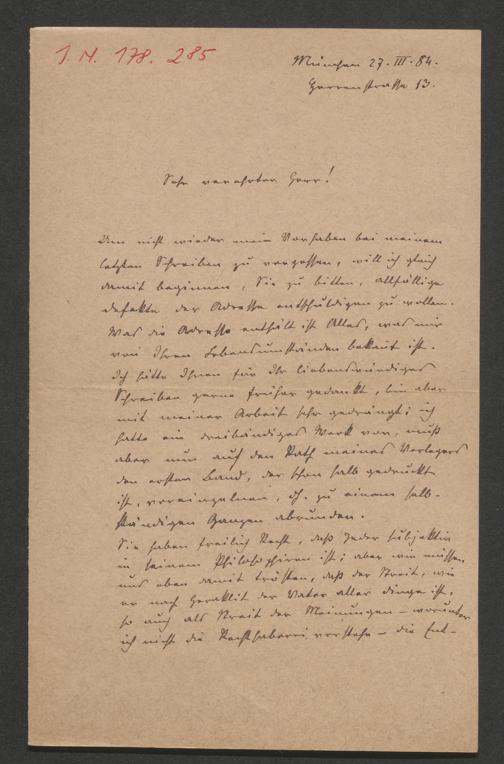 I. N. 178. 285
München 27. III. 84.
Herrenstraße 13.
Sehr verehrter Herr!
Um nicht wieder mein Vorhaben bei meinem
letzten Schreiben zu vergessen, will ich gleich
damit beginnen, Sie zu bitten, allfällige
Defekte der Adresse entschuldigen zu wollen.
Was die Adresse enthält ist Alles, was mir
von Ihren Lebensumständen bekannt ist.
Ich hätte Ihnen für Ihr liebenswürdiges
Schreiben gerne früher gedankt, bin aber
mit meiner Arbeit sehr gedrängt; ich
hatte ein dreibändiges Werk vor, muß
aber nun auf den Rath meines Verlegers
den ersten Band, der schon halb gedruckt
ist, vereinzelnen, d. h. zu einem selb-
ständigen Ganzen abrunden.
Sie haben freilich Recht, daß Jeder subjektiv
in seinem Philosophiren ist; aber wir müssen
uns eben damit trösten, daß der Streit, wie
er nach Heraklit der Vater aller Dinge ist,
so auch als Streit der Meinungen – worunter
ich nicht die Rechthaberei verstehe – die Ent-